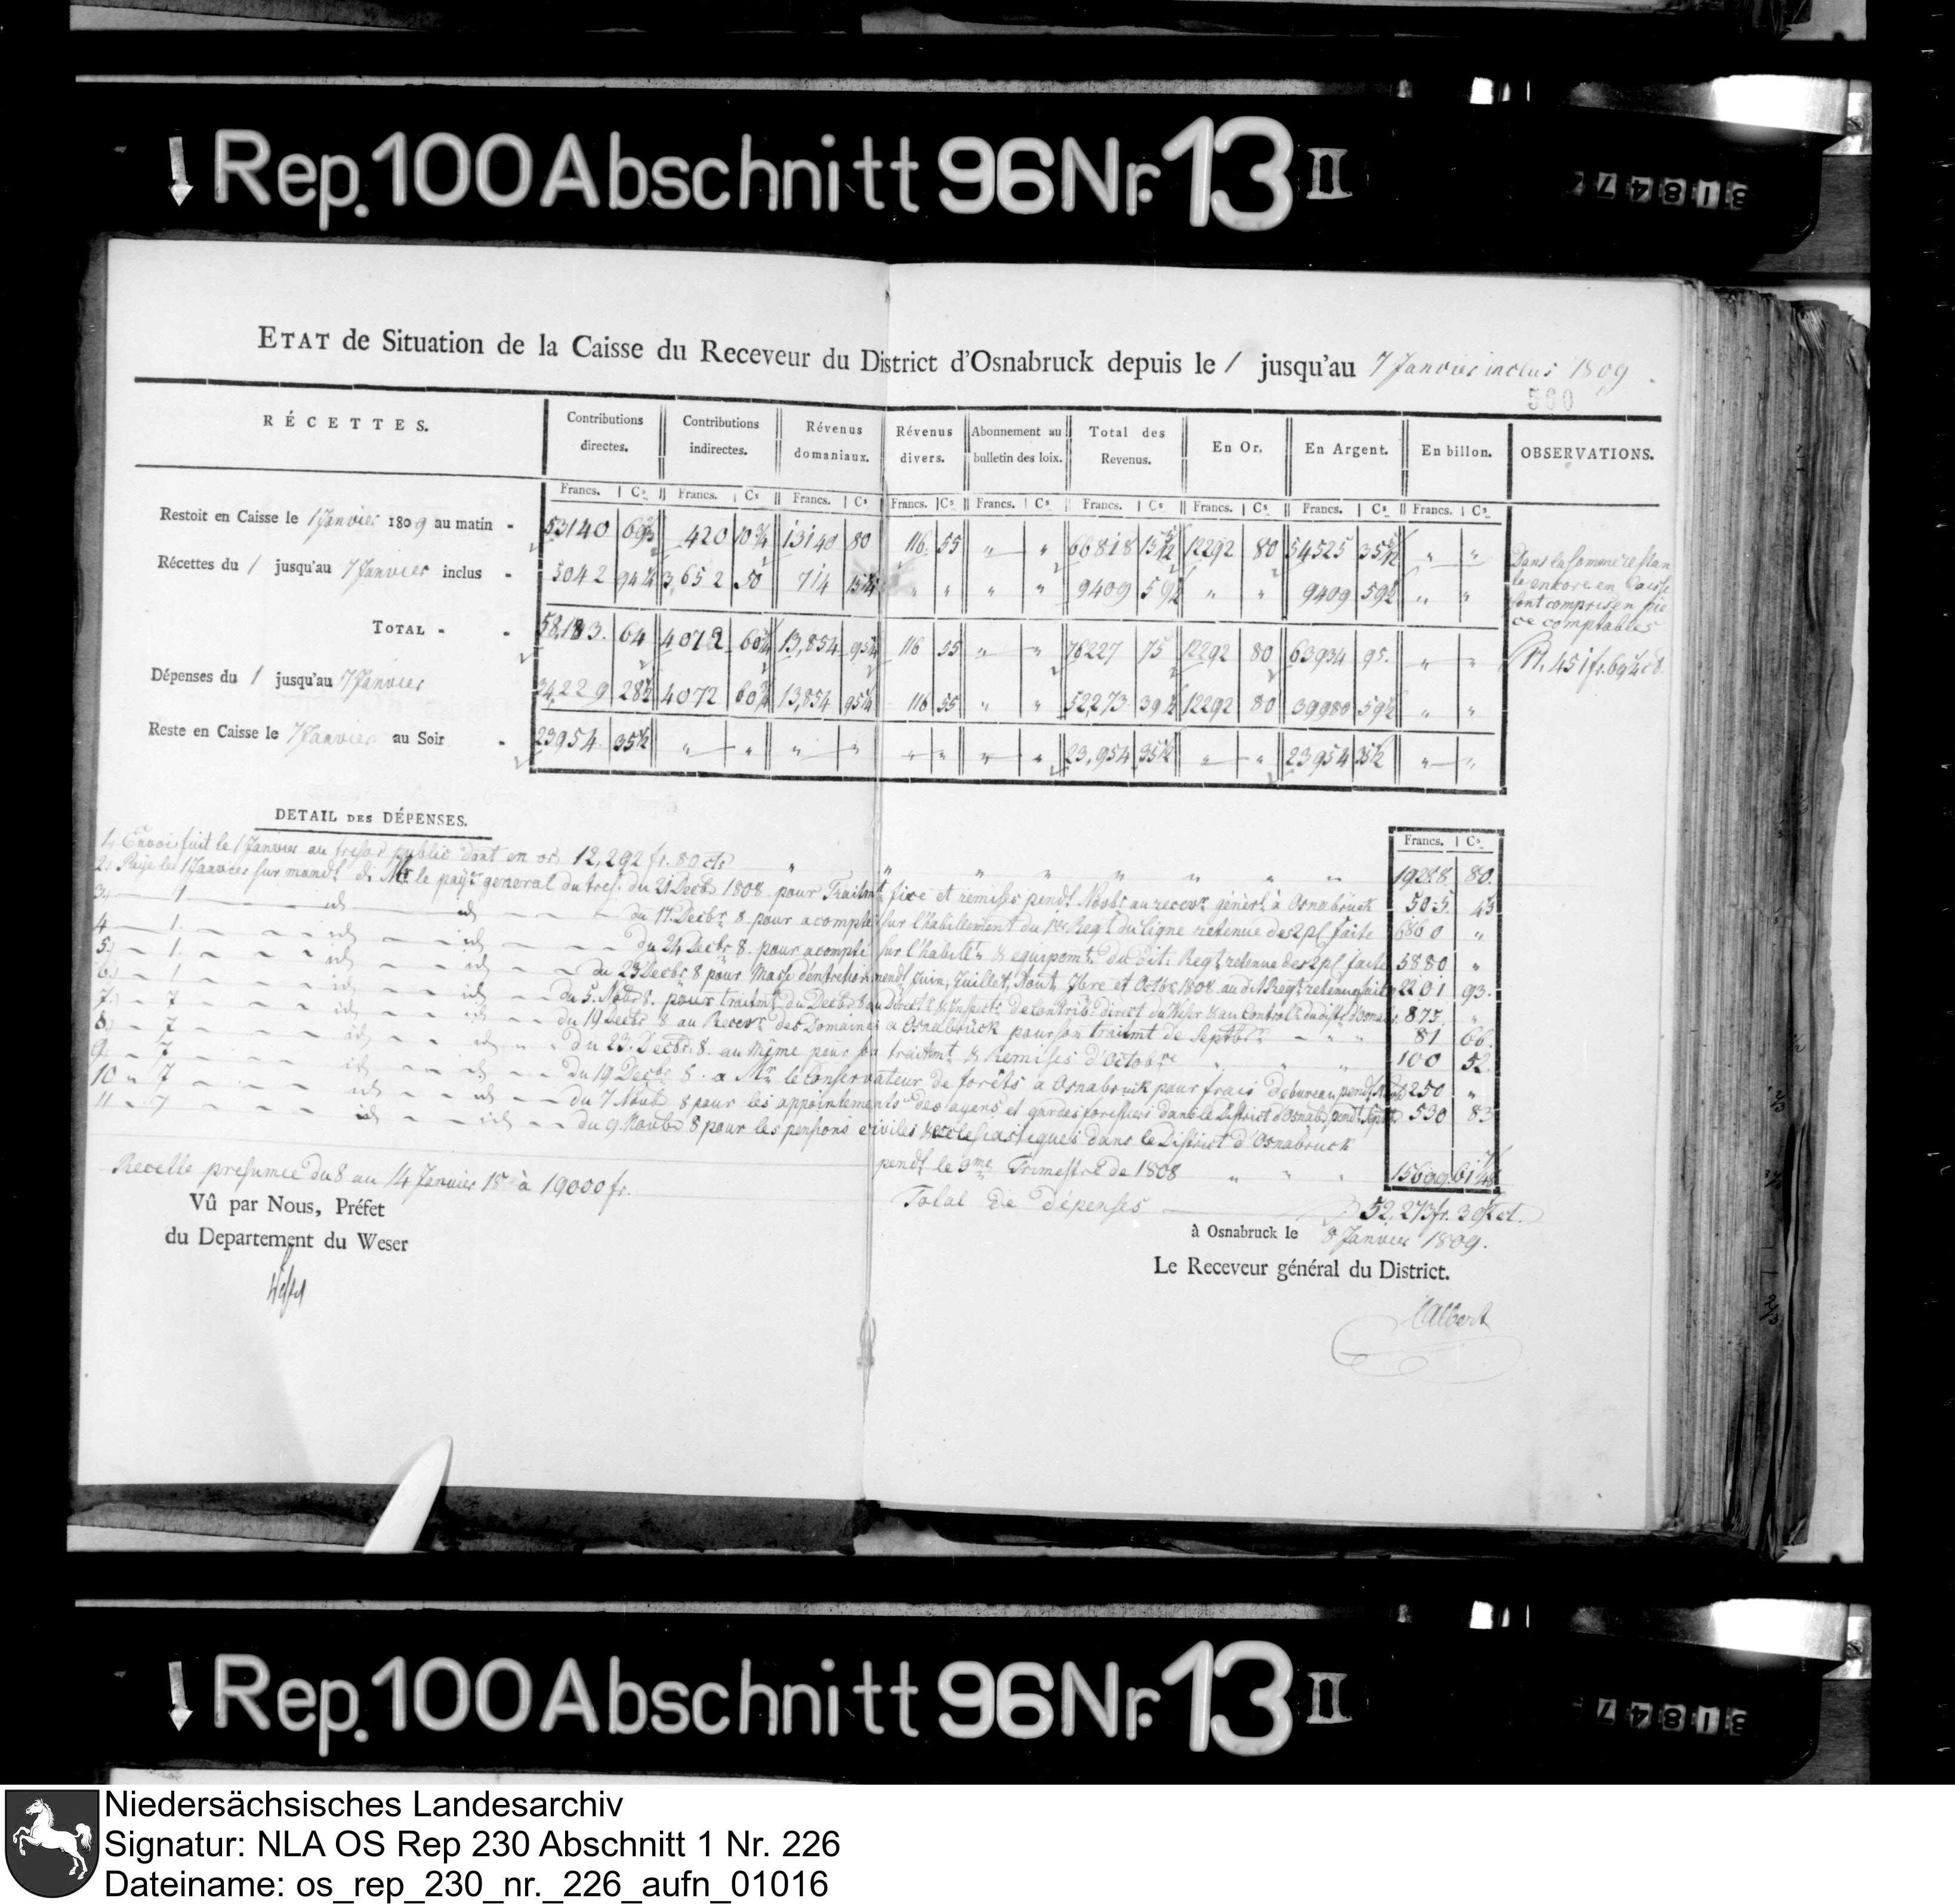 Rep. 100 Abschnitt 96 Nr. 13 II
31847
ETAT de Situation de la Caisse du Receveur du District d'Osnabruck depuis le 1 jusqu'au 7 Janvier inclus 1809
560
RÉCETTES. Contributions directes. Contributions indirectes. Révenus domaniaux. Révenus divers. Abonnement au bulletin des loix. Total des Revenus. En Or. En Argent. En billon. OBSERVATIONS.
Francs. Cs. Francs. Cs Francs. Cs Francs. Cs Francs. Cs Francs. Cs Francs. Cs Francs. Cs Francs. Cs
Restoit en Caisse le 1 Janvier 1809 au matin 53140 420 13140 80 116 55 " " 66818 12292 80 54525 " "
Récettes du 1 jusqu'au 7 Janvier inclus 3652 50 714 " " " " 9409 59½ " " 9409 59½ " "
TOTAL 58,183. 64 4072 60¾ 13,854 95¼ 116 55 " " 76227 75 12292 80 63934 95. " "
Dépenses du 1 jusqu'au 7 Janvier 34,229 28½ 4072 60¾ 13,854 95¼ 116 55 " " 52,273 39½ 12292 80 39980 59½ " "
Reste en Caisse le 7 Janvier au Soir 23954 35½ " " " " " " " " 23,954 35½ " " 23954 35½ " "
Dans la somme restan
te encore en Caisse
sont compris en pie
ce comptables
DETAIL DES DÉPENSES.
Francs. Cs
1, Envoi fait le 1 Janvier au tresor public dont en or, 12,292 fr. 80 cts " " " " " " " " 80.
2, Payé le 1 Janvier sur mandt de Mr le payr general du tres. du 21 Decbr 1808 pour Traitmt fixe et remises pendt Novbr au recevr génerl à Osnabrück 505. 45
3, 1 id id du 17 Decbr 8. pour acompte sur l'habillement du 1er Regt du ligne retenue des 2 pf faite 6860 "
4 1. id id du 24 Decbr 8. pour acompte sur l'habillt & equipemt du dit Regt retenue des 2 pf faite 5880 "
5, 1. id id du 23 Decbr 8 pour Masse d'entretien pendt Juin, Juillet, Aout, 7bre et Octbr 1808 au dit Regt retenue faite 2201 93.
6, 1 id id du 5. Novbr 8. pour traitmt du 875 "
7, 7 id id du 19 Decbr 8 au Recevr des Domaines a Osnabrück pour son traitmt de Septbr 81 66.
8, 7 id id du 23. Decbr. 8. au Même pour son traitemt & Remises d'Octobre 100 52.
9. 7 id id du 19 Decbr 8. a Mr le Conservateur de forêts a Osnabruck pour frais de bureau pendt 250 "
10 7 id id du 7 Novbr 8 pour les appointements des agens et gardes forestiers dans le District d'Osnab. pendt Septbr 530 83
11 7 id id du 9. Novbr 8 pour les pensions civiles & ecclesiastiques dans le District d'Osnabruck
pendt le 3me Trimestre de 1808 " " "
Total de dépenses 52,273 fr. 39½ ct.
Recette presumée du 8 au 14 Janvier à 19000 fr.
Vû par Nous, Préfet
du Departement du Weser
à Osnabruck le 8 Janvier 1809.
Le Receveur général du District.
Albert
Rep. 100 Abschnitt 96 Nr. 13 II
31847
Niedersächsisches Landesarchiv
Signatur: NLA OS Rep 230 Abschnitt 1 Nr. 226
Dateiname: os_rep_230_nr._226_aufn_01016